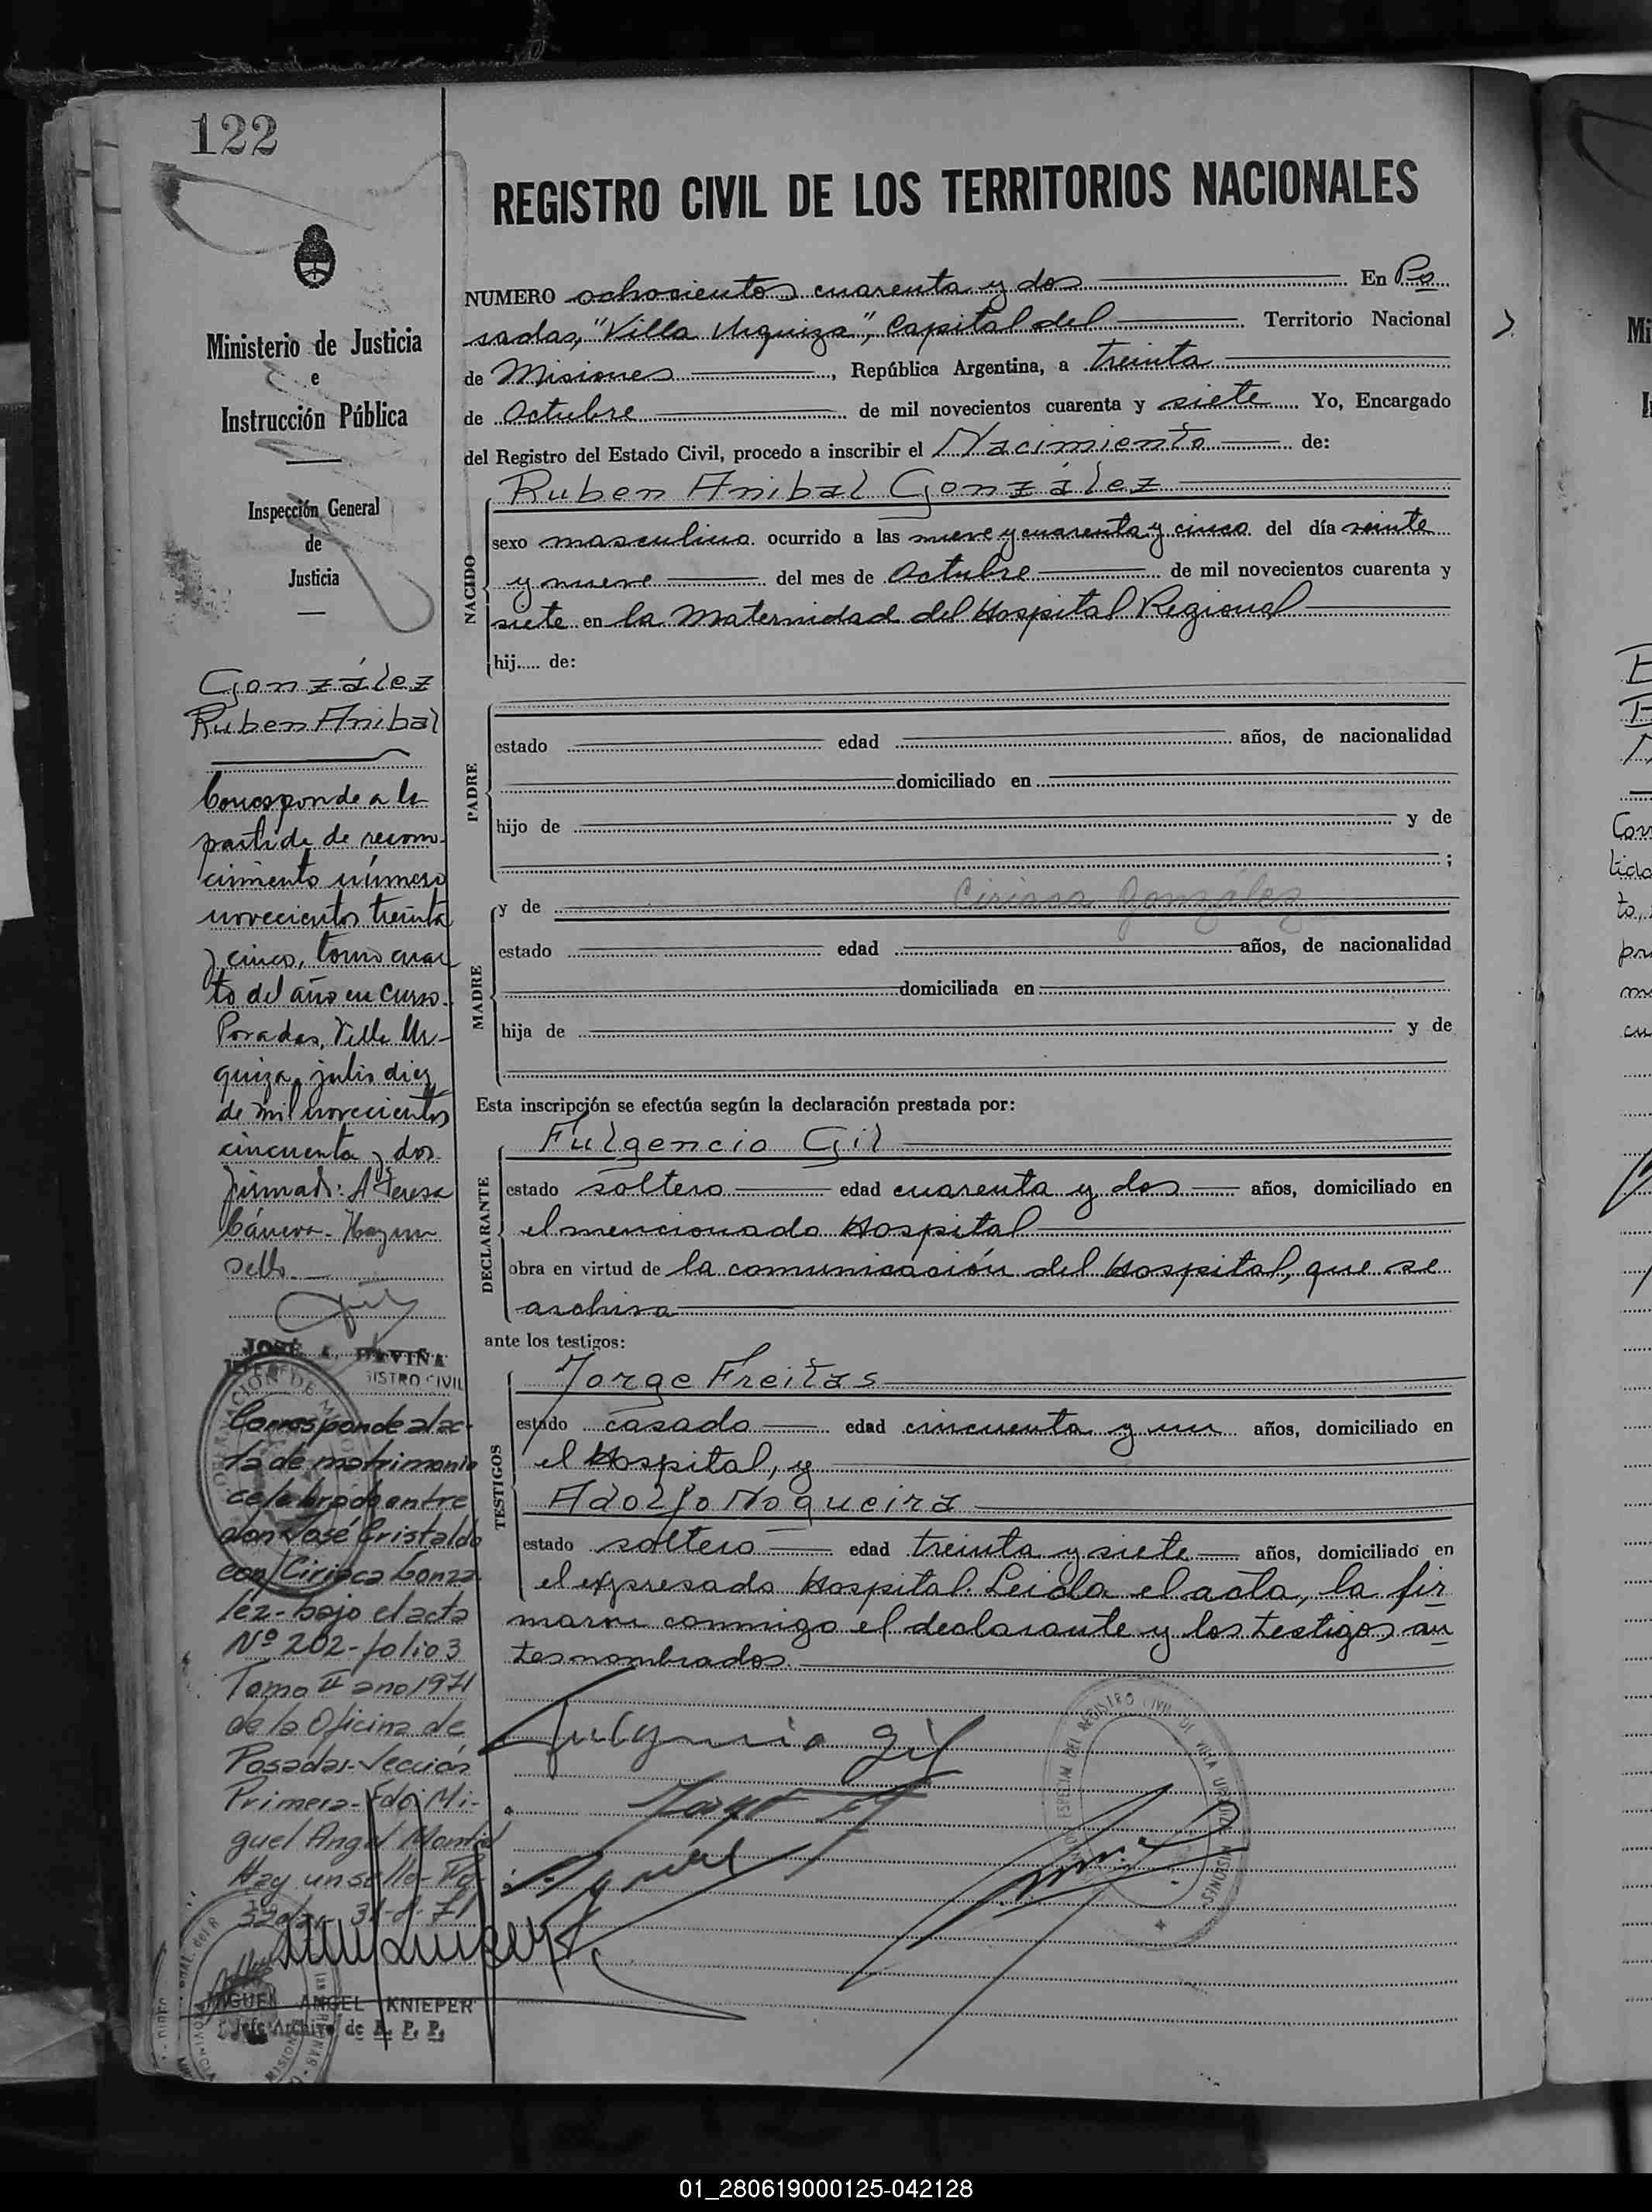 122
REGISTRO CIVIL DE LOS TERRITORIOS NACIONALES
Ministerio de Justicia
e
Instrucción Pública
Inspección General
de
Justicia
González
Ruben Anibal
Corresponde a la
partida de recono-
cimiento número
novecientos treinta
y cinco, tomo cuar
to del año en curso.
Posadas, Villa Ur-
quiza, julio diez
de mil novecientos
cincuenta y dos
firmado: A Teresa
Cáneva. Hay un
sello.
JOSÉ A. DAVIÑA
Corresponde al ac-
ta de matrimonio
celebrado entre
don José Cristaldo
con Ciriaca Gonza
léz- bajo el acta
Nº 202- folio 3
Tomo II año 1971
de la Oficina de
Posadas- Sección
Primera- Fdo: Mi-
guel Angel Montiel
Hay un sello- Po-
sadas, 31-8-71
MIGUEL ANGEL KNIEPER
Jefe Archivo de R. P. P.
NUMERO ochocientos cuarenta y dos En Po
sadas, "Villa Urquiza", Capital del Territorio Nacional
de Misiones, República Argentina, a treinta
de Octubre de mil novecientos cuarenta y siete Yo, Encargado
del Registro del Estado Civil, procedo a inscribir el Nacimiento de:
Ruben Anibal González
NACIDO
sexo masculino ocurrido a las nueve y cuarenta y cinco del día veinte
y nueve del mes de Octubre de mil novecientos cuarenta y
siete en la Maternidad del Hospital Regional
hij..... de:
PADRE
estado edad años, de nacionalidad
domiciliado en
hijo de y de
;
MADRE
y de Ciriaca González
estado edad años, de nacionalidad
domiciliada en
hija de y de
Esta inscripción se efectúa según la declaración prestada por:
DECLARANTE
Fulgencio Gil
estado soltero edad cuarenta y dos años, domiciliado en
el mencionado Hospital
obra en virtud de la comunicación del Hospital, que se
archiva
ante los testigos:
TESTIGOS
Jorge Freitas
estado casado edad cincuenta y un años, domiciliado en
el Hospital, y
Adolfo Nogueira
estado soltero edad treinta y siete años, domiciliado en
el expresado Hospital. Leida el acta, la fir
maron conmigo el declarante y los testigos an
tes nombrados.
Fulgencio Gil
01_280619000125-042128